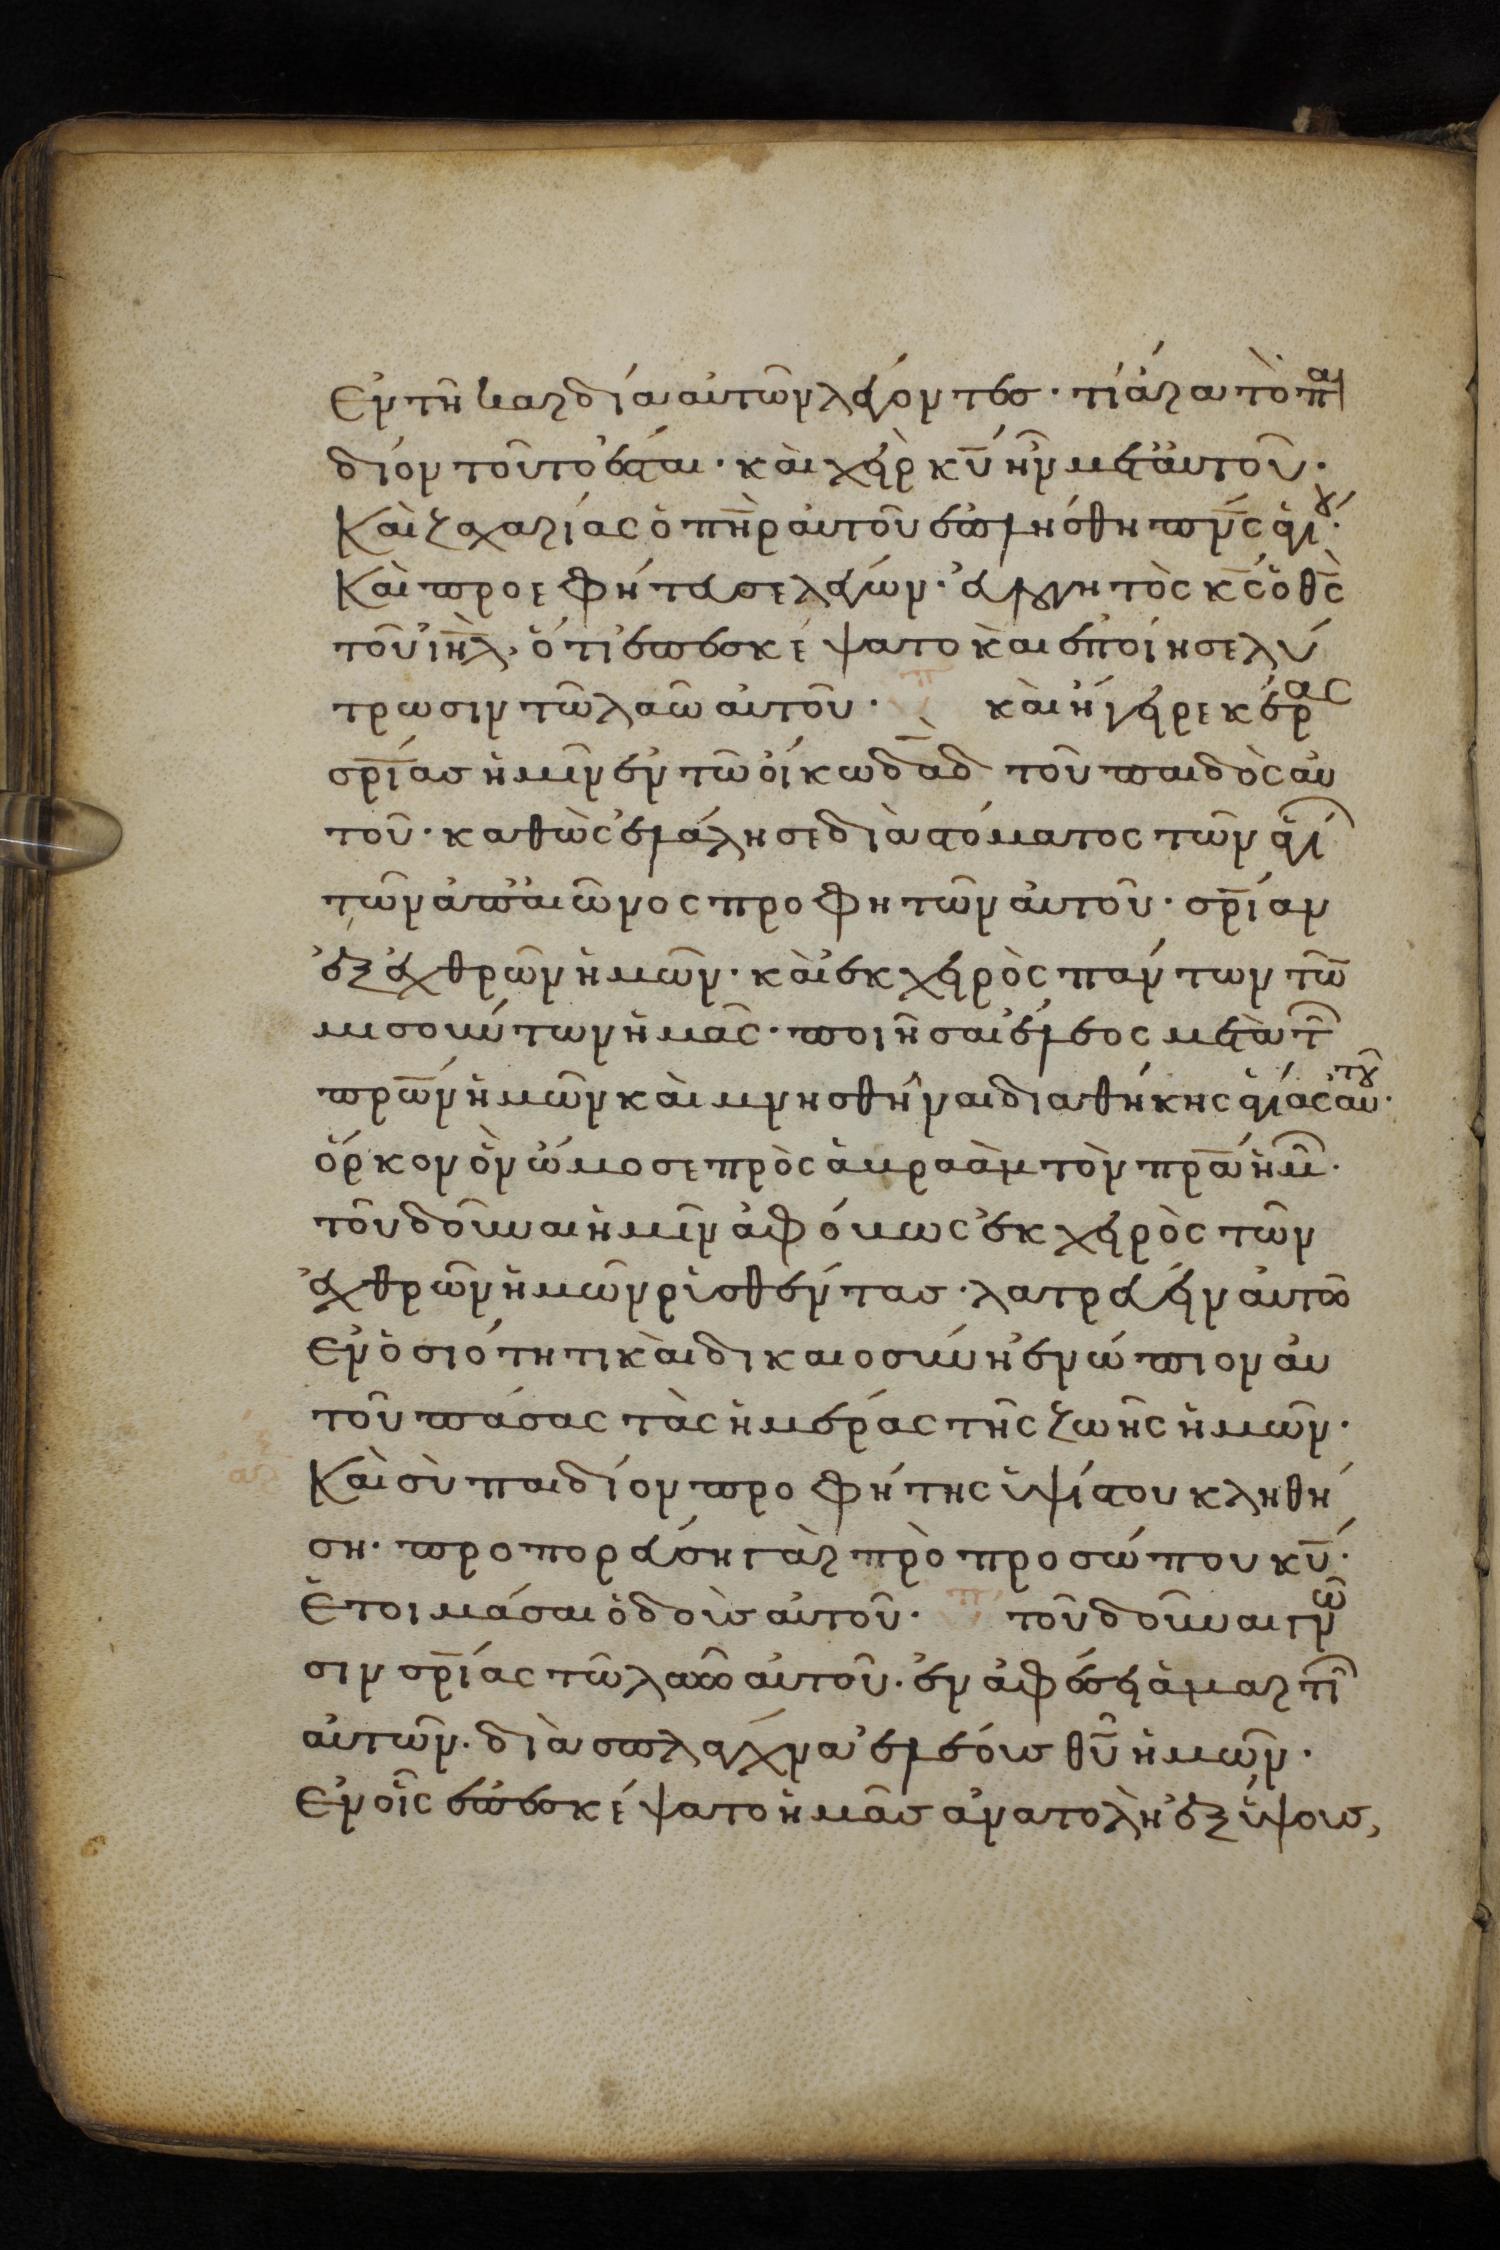 Ἐν τῆ καρδία αὐτῶν λέγοντες· τί ἄρα τὸ παι
δίον τοῦτο ἔσται· καὶ χεὶρ κ̅υ̅ ἦν μετ' αὐτοῦ·
Καὶ ζαχαρίας ὁ π̅η̅ρ αὐτοῦ ἐπλήσθη π̅ν̅ς ἁγίου·
Καὶ προεφήτευσε λέγων· εὐλογητὸς κ̅ς̅ ὁ θ̅ς̅
τοῦ ι̅η̅λ̅, ὅτι ἐπεσκέψατο καὶ ἐποίησε λύ
τρωσιν τῶ λαῶ αὐτοῦ· καὶ ἤγειρε κέρας
σ̅ρ̅ίας ἡμῖν ἐν τῶ οἴκω δ̅α̅δ̅ τοῦ παιδὸς αὐ
τοῦ· καθὼς ἐλάλησε διὰ στόματος τῶν ἁγί
τῶν ἀπ' αἰῶνος προφητῶν αὐτοῦ· σ̅ρ̅ίαν
ἐξ ἐχθρῶν ἡμῶν· καὶ ἐκ χειρὸς πάντων τῶ̅
μισούντων ἡμᾶς· ποιῆσαι ἔλεος μετὰ τῶν
π̅ρ̅ων ἡμῶν καὶ μνησθῆναι διαθήκης ἁγίας αὐτοῦ·
ὅρκον ὃν ὤμοσε πρὸς ἁβραὰμ τὸν π̅ρ̅α̅ ἡμῶν·
τοῦ δοῦναι ἡμῖν ἀφόβως ἐκ χειρὸς τῶν
ἐχθρῶν ἡμῶν ρυσθέντας· λατρεύειν αὐτῶ
Ἐν ὁσιότητι καὶ δικαιοσύνη ἐνώπιον αὐ
τοῦ πάσας τὰς ἡμέρας τῆς ζωῆς ἡμῶν·
Καὶ σὺ παιδίον προφήτης ὑψίστου κληθή
ση· προπορεύση γὰρ πρὸ προσώπου κ̅υ̅·
Ἑτοιμάσαι ὁδοὺς αὐτοῦ· τοῦ δοῦναι γνῶ
σιν σ̅ρ̅ίας τῶ λαῶ αὐτοῦ· ἐν ἀφέσει ἁμαρτι
αὐτῶν· διὰ σπλάγχνα ἐλέους θ̅υ̅ ἡμῶν·
Ἐν οἷς ἐπεσκέψατο ἡμᾶς ἀνατολὴ ἐξ ὕψους,